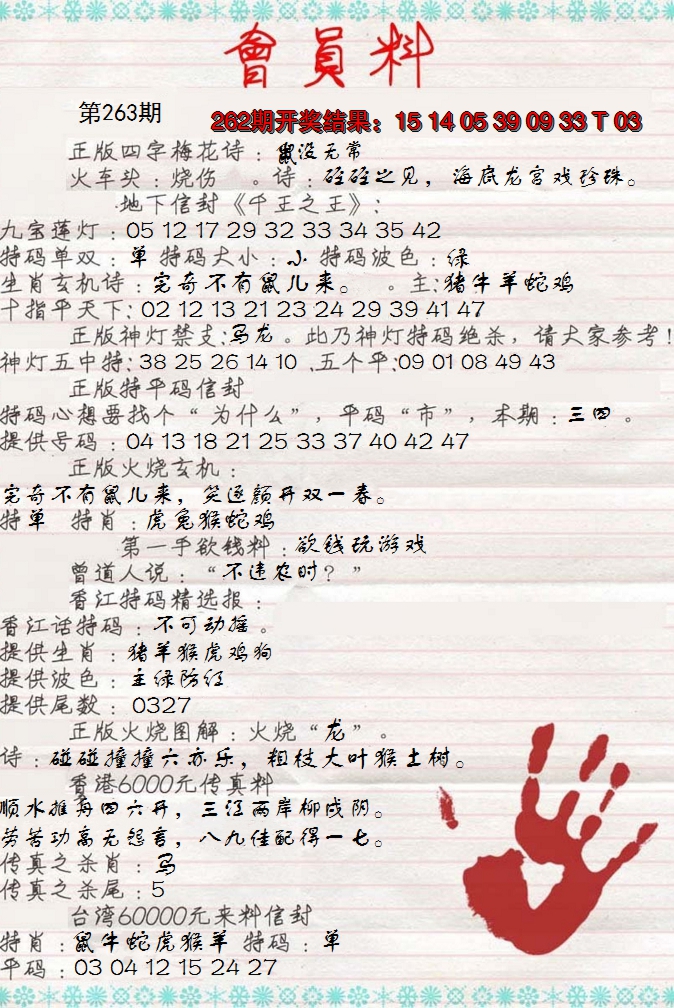 會員料
第263期
262期开奖结果：15 14 05 39 09 33 T 03
正版四字梅花诗：鼠没无常
火车头：烧伤 。诗：碰碰之见，海底龙宫戏珍珠。
地下信封《千王之王》：
九宝莲灯：05 12 17 29 32 33 34 35 42
特码单双：单 特码大小：小 特码波色：绿
生肖玄机诗：完奇不有鼠儿来。 。主：猪牛羊蛇鸡
十指平天下：02 12 13 21 23 24 29 39 41 47
正版神灯禁支：马龙。此乃神灯特码绝杀，请大家参考！
神灯五中特：38 25 26 14 10 .五个平：09 01 08 49 43
正版特平码信封
特码心想要找个“为什么”，平码“市”，本期：三四。
提供号码：04 13 18 21 25 33 37 40 42 47
正版火烧玄机：
完奇不有鼠儿来，笑逐颜开双一春。
特单 特肖：虎兔猴蛇鸡
第一手欲钱料：欲钱玩游戏
曾道人说：“不违农时？”
香江特码精选报：
香江话特码：不可动摇。
提供生肖：猪羊猴虎鸡狗
提供波色：主绿防红
提供尾数：0327
正版火烧图解：火烧“龙”。
诗：碰碰撞撞六亦乐，粗枝大叶猴土树。
香港6000元传真料
顺水推舟四六开，三江两岸柳成阴。
劳苦功高无怨言，八九佳配得一七。
传真之杀肖：马
传真之杀尾：5
台湾60000元来料信封
特肖：鼠牛蛇虎猴羊 特码：单
平码：03 04 12 15 24 27